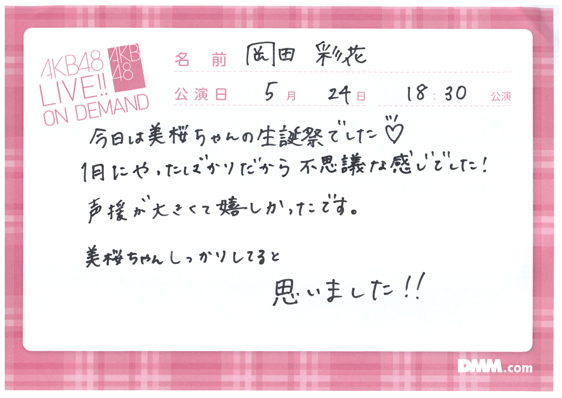 AKB48
LIVE!!
ON DEMAND
AKB
48
名前 岡田 彩花
公演日 5月 24日 18:30 公演
今日は美桜ちゃんの生誕祭でした♡
1月にやったばかりだから 不思議な感じでした!
声援が大きくて嬉しかったです。
美桜ちゃんしっかりしてると
思いました!!
DMM.com